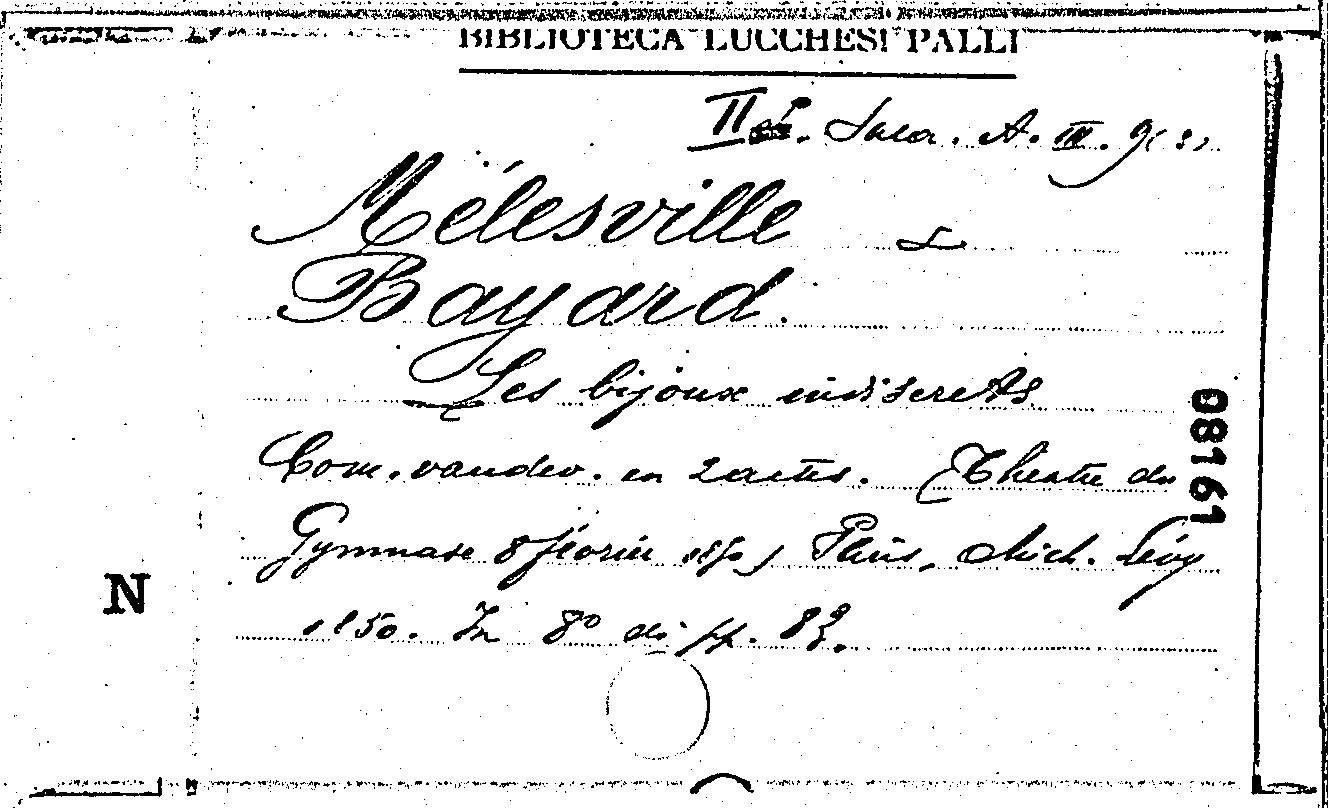 BIBLIOTECA LUCCHESI PALLI
II Sala. A. III. 9(3)
Mélesville &
Bayard.
Les bijoux indiscrets
Com. vaudev. en 2 actes. (Théatre du
Gymnase 8 février 1850) Paris, Mich. Lévy
1850. In 8º di pp.
08161
N